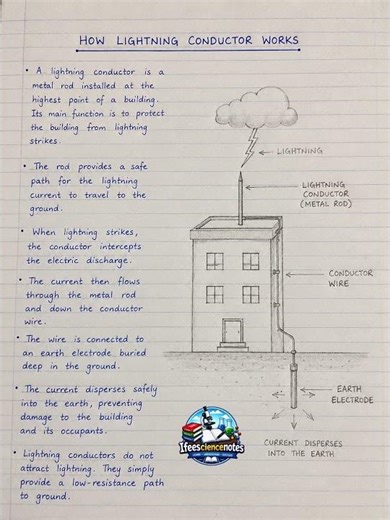 HOW LIGHTNING CONDUCTOR WORKS
• A lightning conductor is a
metal rod installed at the
highest point of a building.
Its main function is to protect
the building from lightning
strikes.
• The rod provides a safe
path for the lightning
current to travel to the
ground.
• When lightning strikes,
the conductor intercepts
the electric discharge.
• The current then flows
through the metal rod
and down the conductor
wire.
• The wire is connected to
an earth electrode buried
deep in the ground.
• The current disperses safely
into the earth, preventing
damage to the building
and its occupants.
• Lightning conductors do not
attract lightning. They simply
provide a low-resistance path
to ground.
LIGHTNING
LIGHTNING
CONDUCTOR
(METAL ROD)
CONDUCTOR
WIRE
EARTH
ELECTRODE
CURRENT DISPERSES
INTO THE EARTH
Ifeesciencenotes